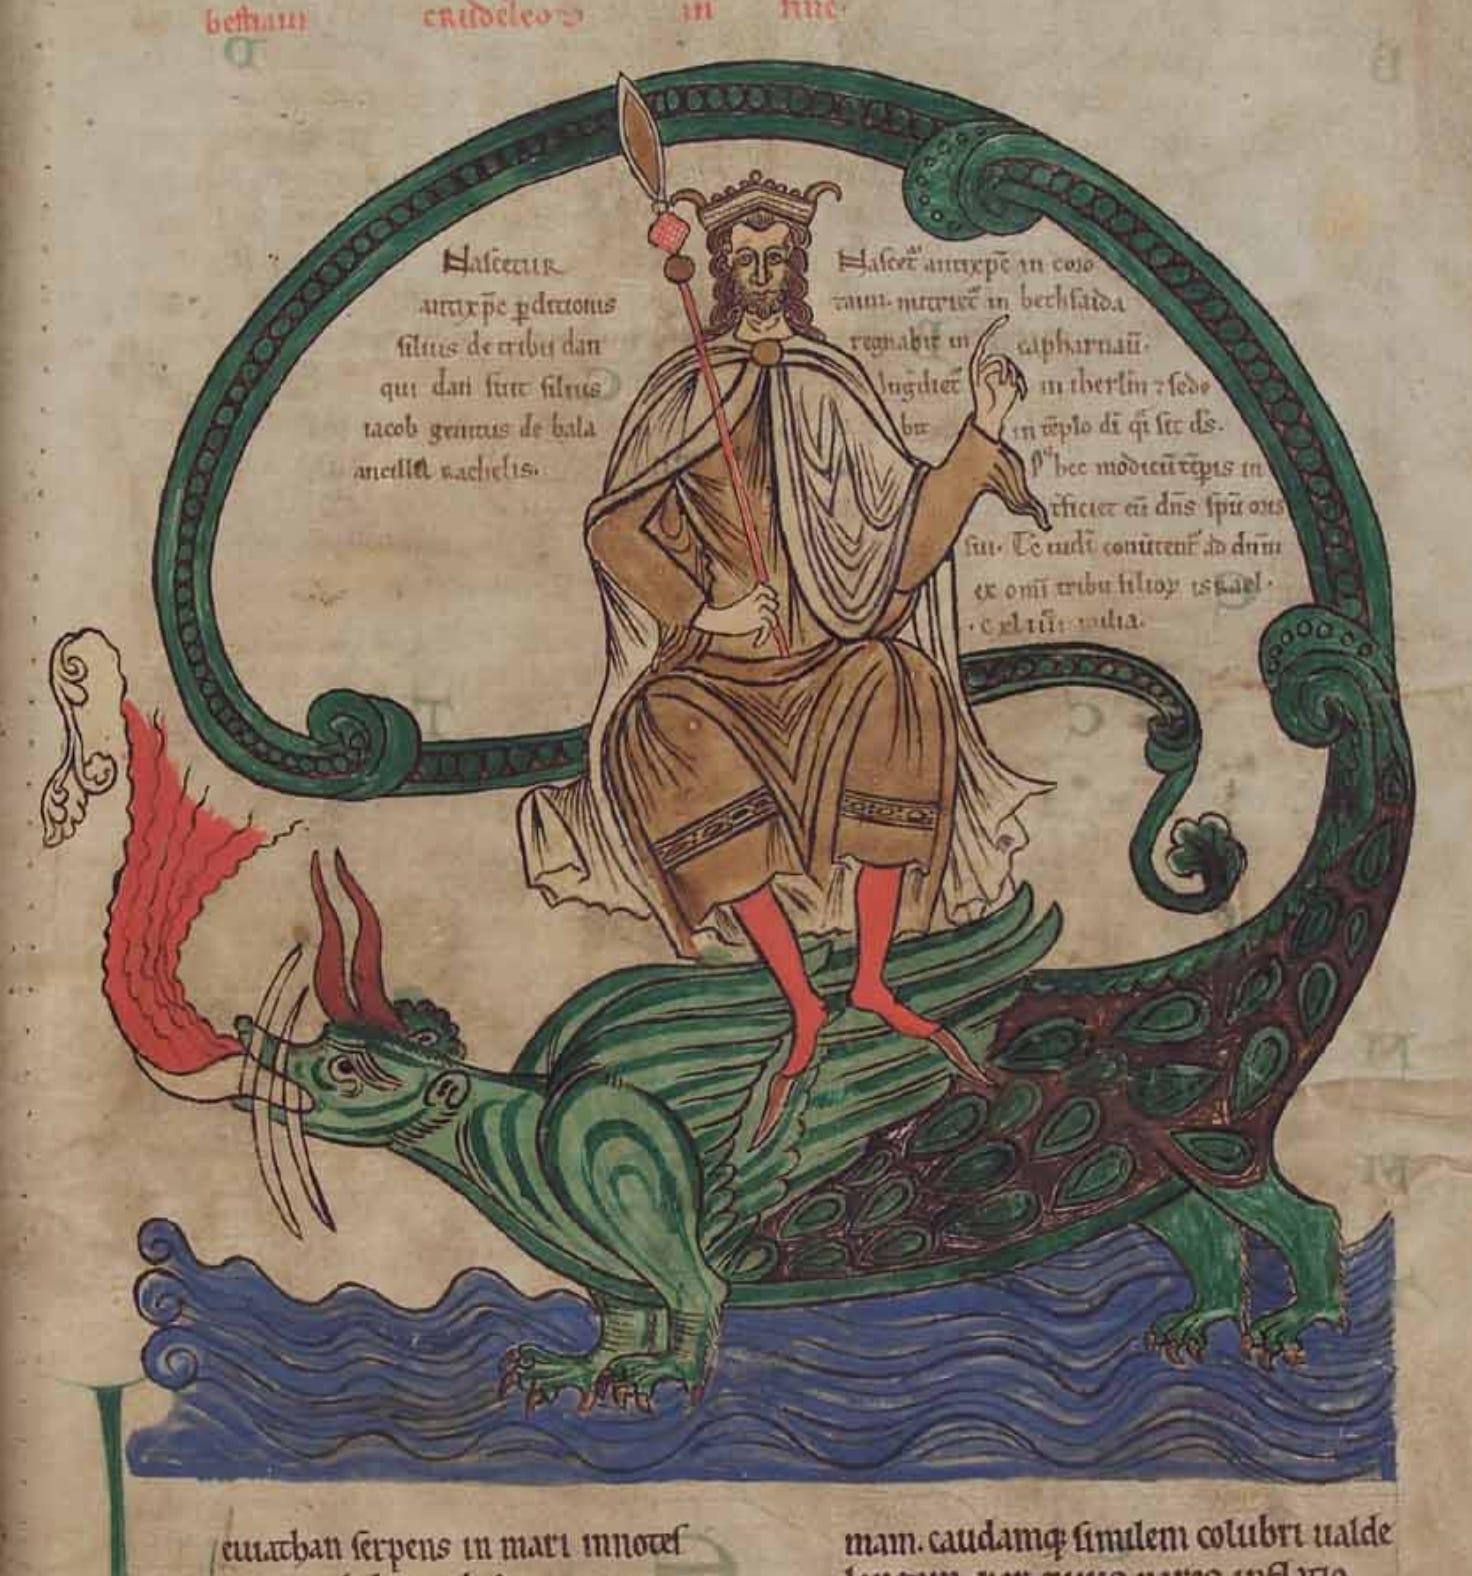 bestiam crudeleo in fine.
Nascetur
antixp̄c p̱ditionis
filius de tribu dan
qui dan fuit filius
iacob genitus de bala
ancilla rachelis.
Nascet᷑ antixp̄c in coro
zaim. nutriet᷑ in bethsaida
regnabit in capharnaū.
in iherl̄m ⁊ sede
bit in tēplo dī q̄i sit ds̄.
hec modicū tēpis in
t̄ficiet eū dn̄s spū oris
sui. Tc̄ iudī conūtent᷑ ad dn̄m
ex om̄i tribu filioꝝ israel.
. c xl iiii milia.
euiathan serpens in mari innotes
mam. caudamqꝫ similem colubri ualde